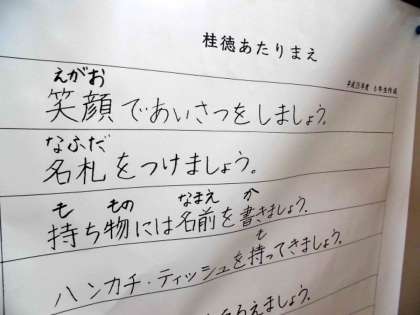 桂徳あたりまえ
平成25年度 6年生作成
えがお
笑顔であいさつをしましょう。
なふだ
名札をつけましょう。
も もの なまえ か
持ち物には名前を書きましょう。
も
ハンカチ・ティッシュを持ってきましょう。
ろえましょう。